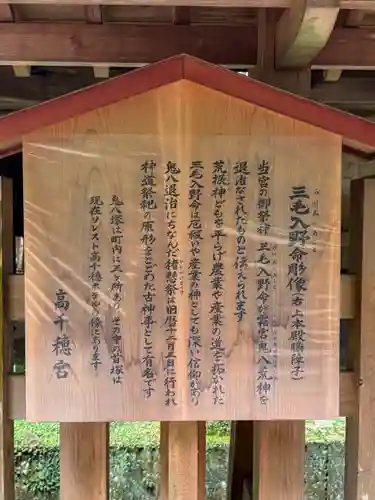 三毛入野命彫像(右上本殿脇障子)
当宮の御祭神三毛入野命が霜宮鬼八荒神を
退治なされたものと伝えられます
荒振神がはらけ農業や産業の道を拓かれた
三毛入野命は厄祓いや産業の神としても深い信仰があり
鬼八退治にちなんだ猪懸祭は旧暦十二月三日に行われ
神道祭祀の原形をとどめた古神事として有名です
鬼八塚は町内に三ヶ所あり その中の首塚は
現在リスト高千穂 像にあります
高千穂宮